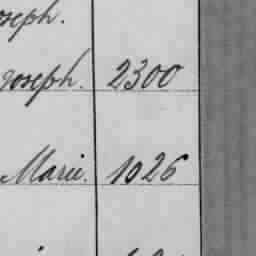 oseph.
Joseph. 2300
Marie. 1026